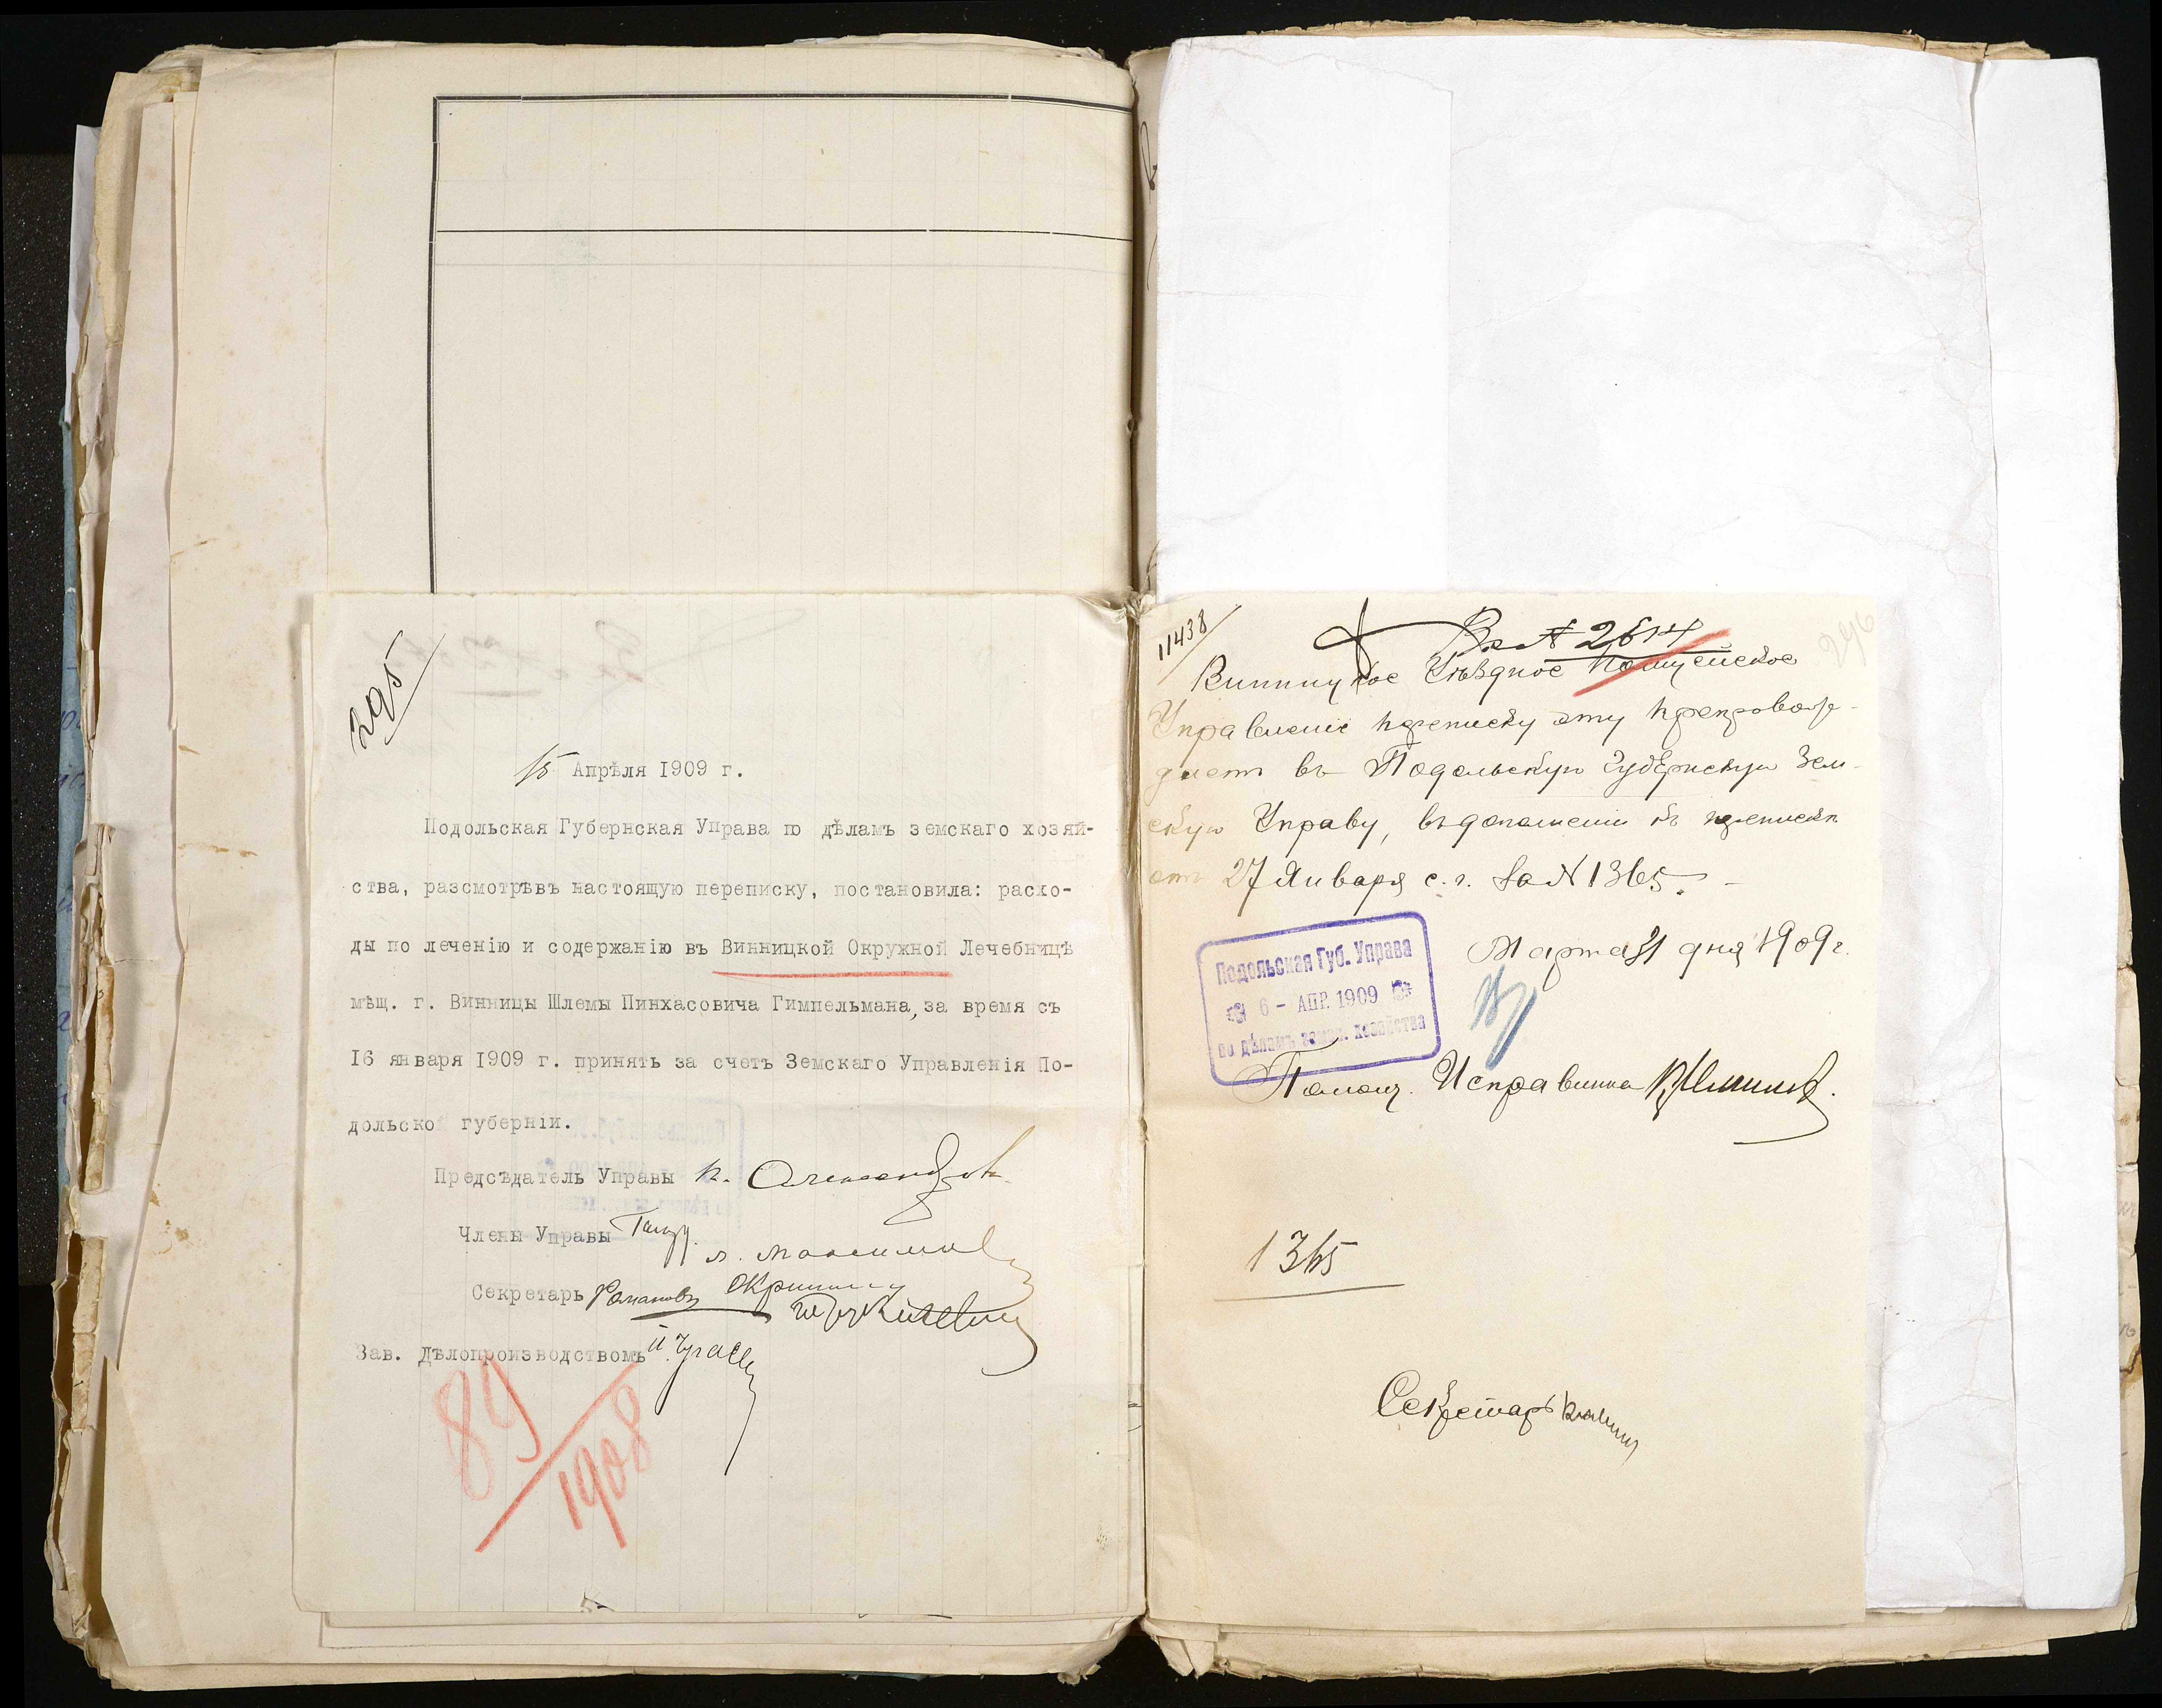 295
15 Апрѣля 1909 г.
Подольская Губернская Управа по дѣламъ земскаго хозяй-
ства, разсмотрѣвъ настоящую переписку, постановила: расхо-
ды по леченію и содержанію въ Винницкой Окружной Лечебницѣ
мѣщ. г. Винницы Шлемы Пинхасовича Гимпельмана, за время съ
16 января 1909 г. принять за счетъ Земскаго Управленія По-
дольско губерніи.
Предсѣдатель Управы
Члены Управы
Секретарь Романовъ
Зав. Дѣлопроизводствомъ
89
1908
11438
296
Вх. № 2614
Винницкое Уѣздное Полицейское
Управленіе переписку эту препровож-
даетъ въ Подольскую Губернскую Зем-
скую Управу, въ дополненіи къ перепискѣ
отъ 27 Января с. г. за № 1365. –
Марта 31 дня 1909 г.
Подольская Губ. Управа
6 – АПР. 1909
по дѣламъ земск. хозяйства
Помощ. Исправника
1365
Секретарь